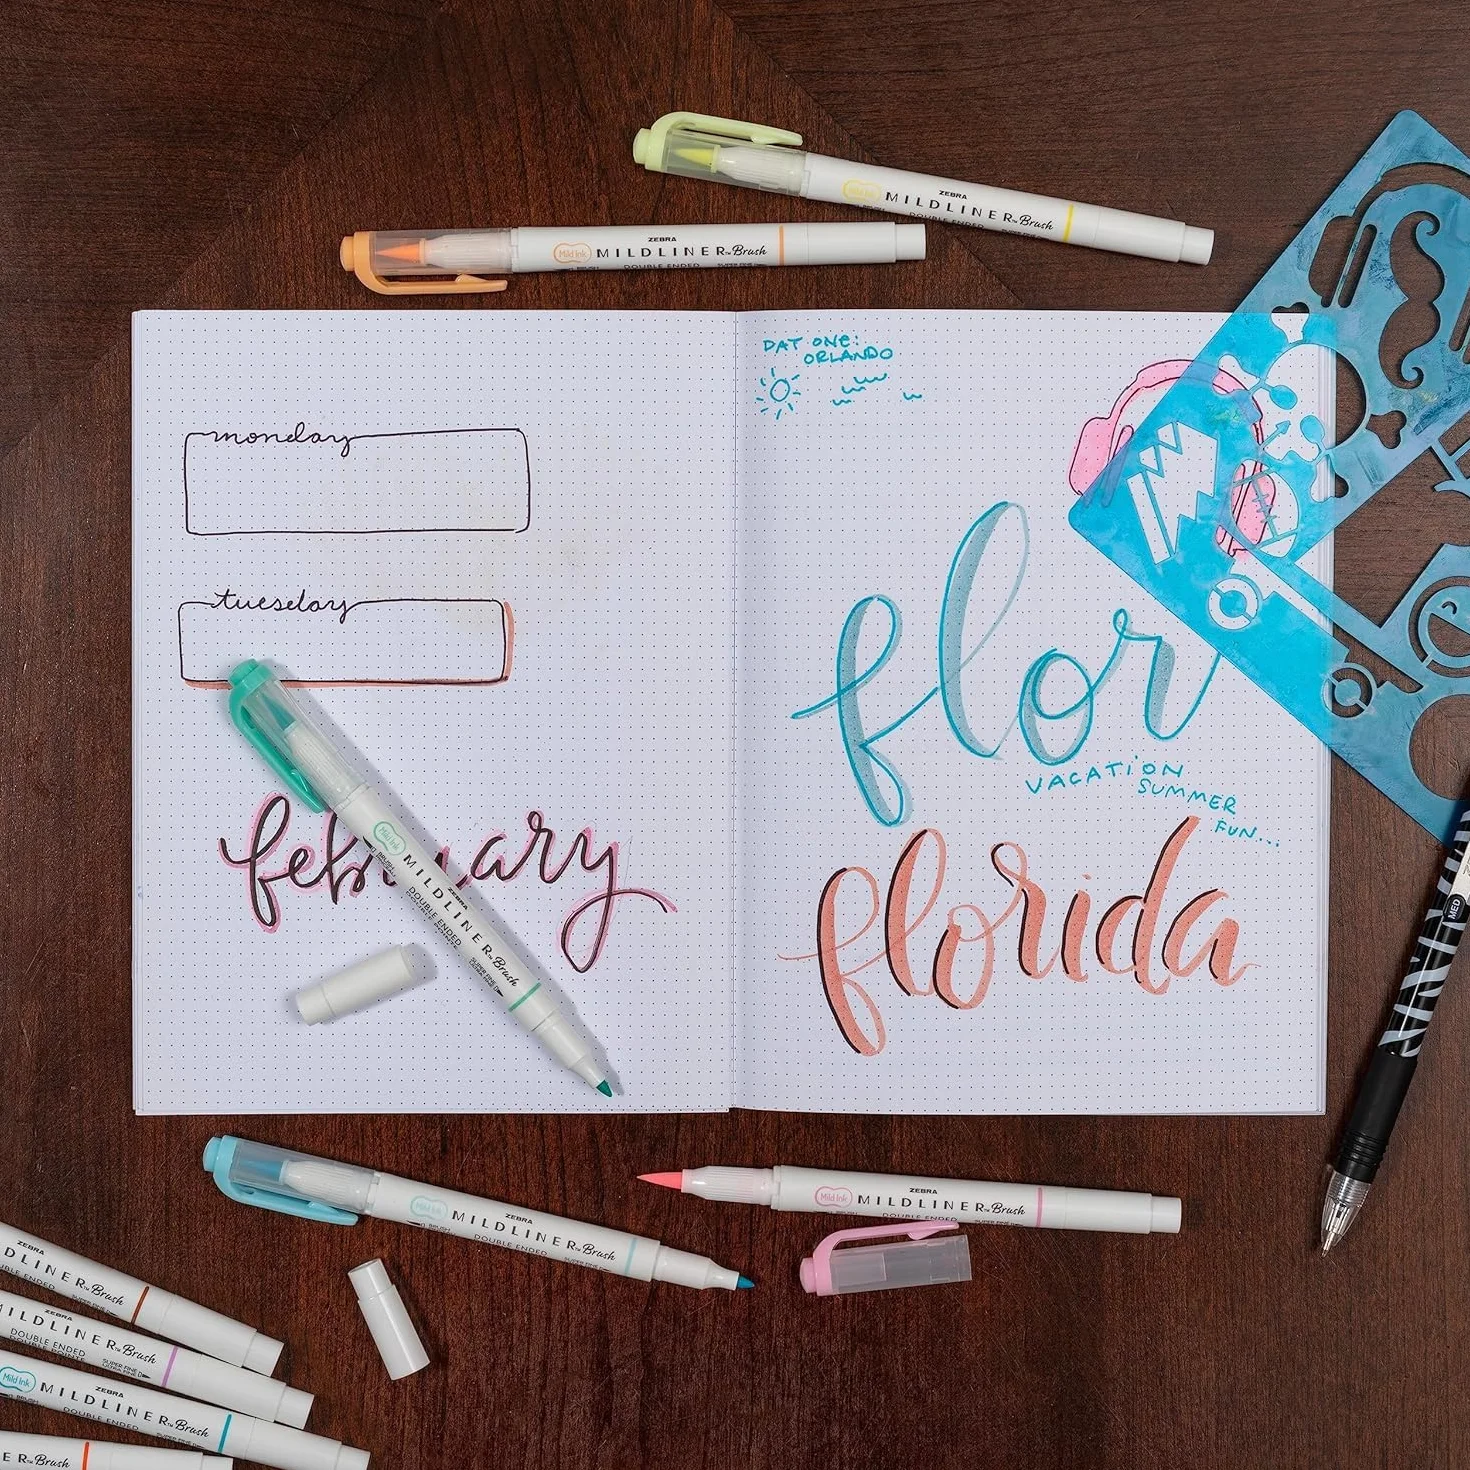 ZEBRA
Mild Ink MILDLINER™ Brush
DOUBLE ENDED
ZEBRA
Mild Ink MILDLINER™ Brush
DOUBLE ENDED
DAT ONE:
ORLANDO
monday
tuesday
flor
VACATION
SUMMER
FUN...
february
florida
ZEBRA
Mild Ink MILDLINER™ Brush
DOUBLE ENDED
SUPER FINE
MED
ZEBRA
Mild Ink MILDLINER™ Brush
DOUBLE ENDED
ZEBRA
Mild Ink MILDLINER™ Brush
DOUBLE ENDED
ZEBRA
DLINER™ Brush
DOUBLE ENDED
ZEBRA
MILDLINER™ Brush
DOUBLE ENDED
SUPER FINE
ZEBRA
Mild Ink MILDLINER™ Brush
DOUBLE ENDED
ER™ Brush